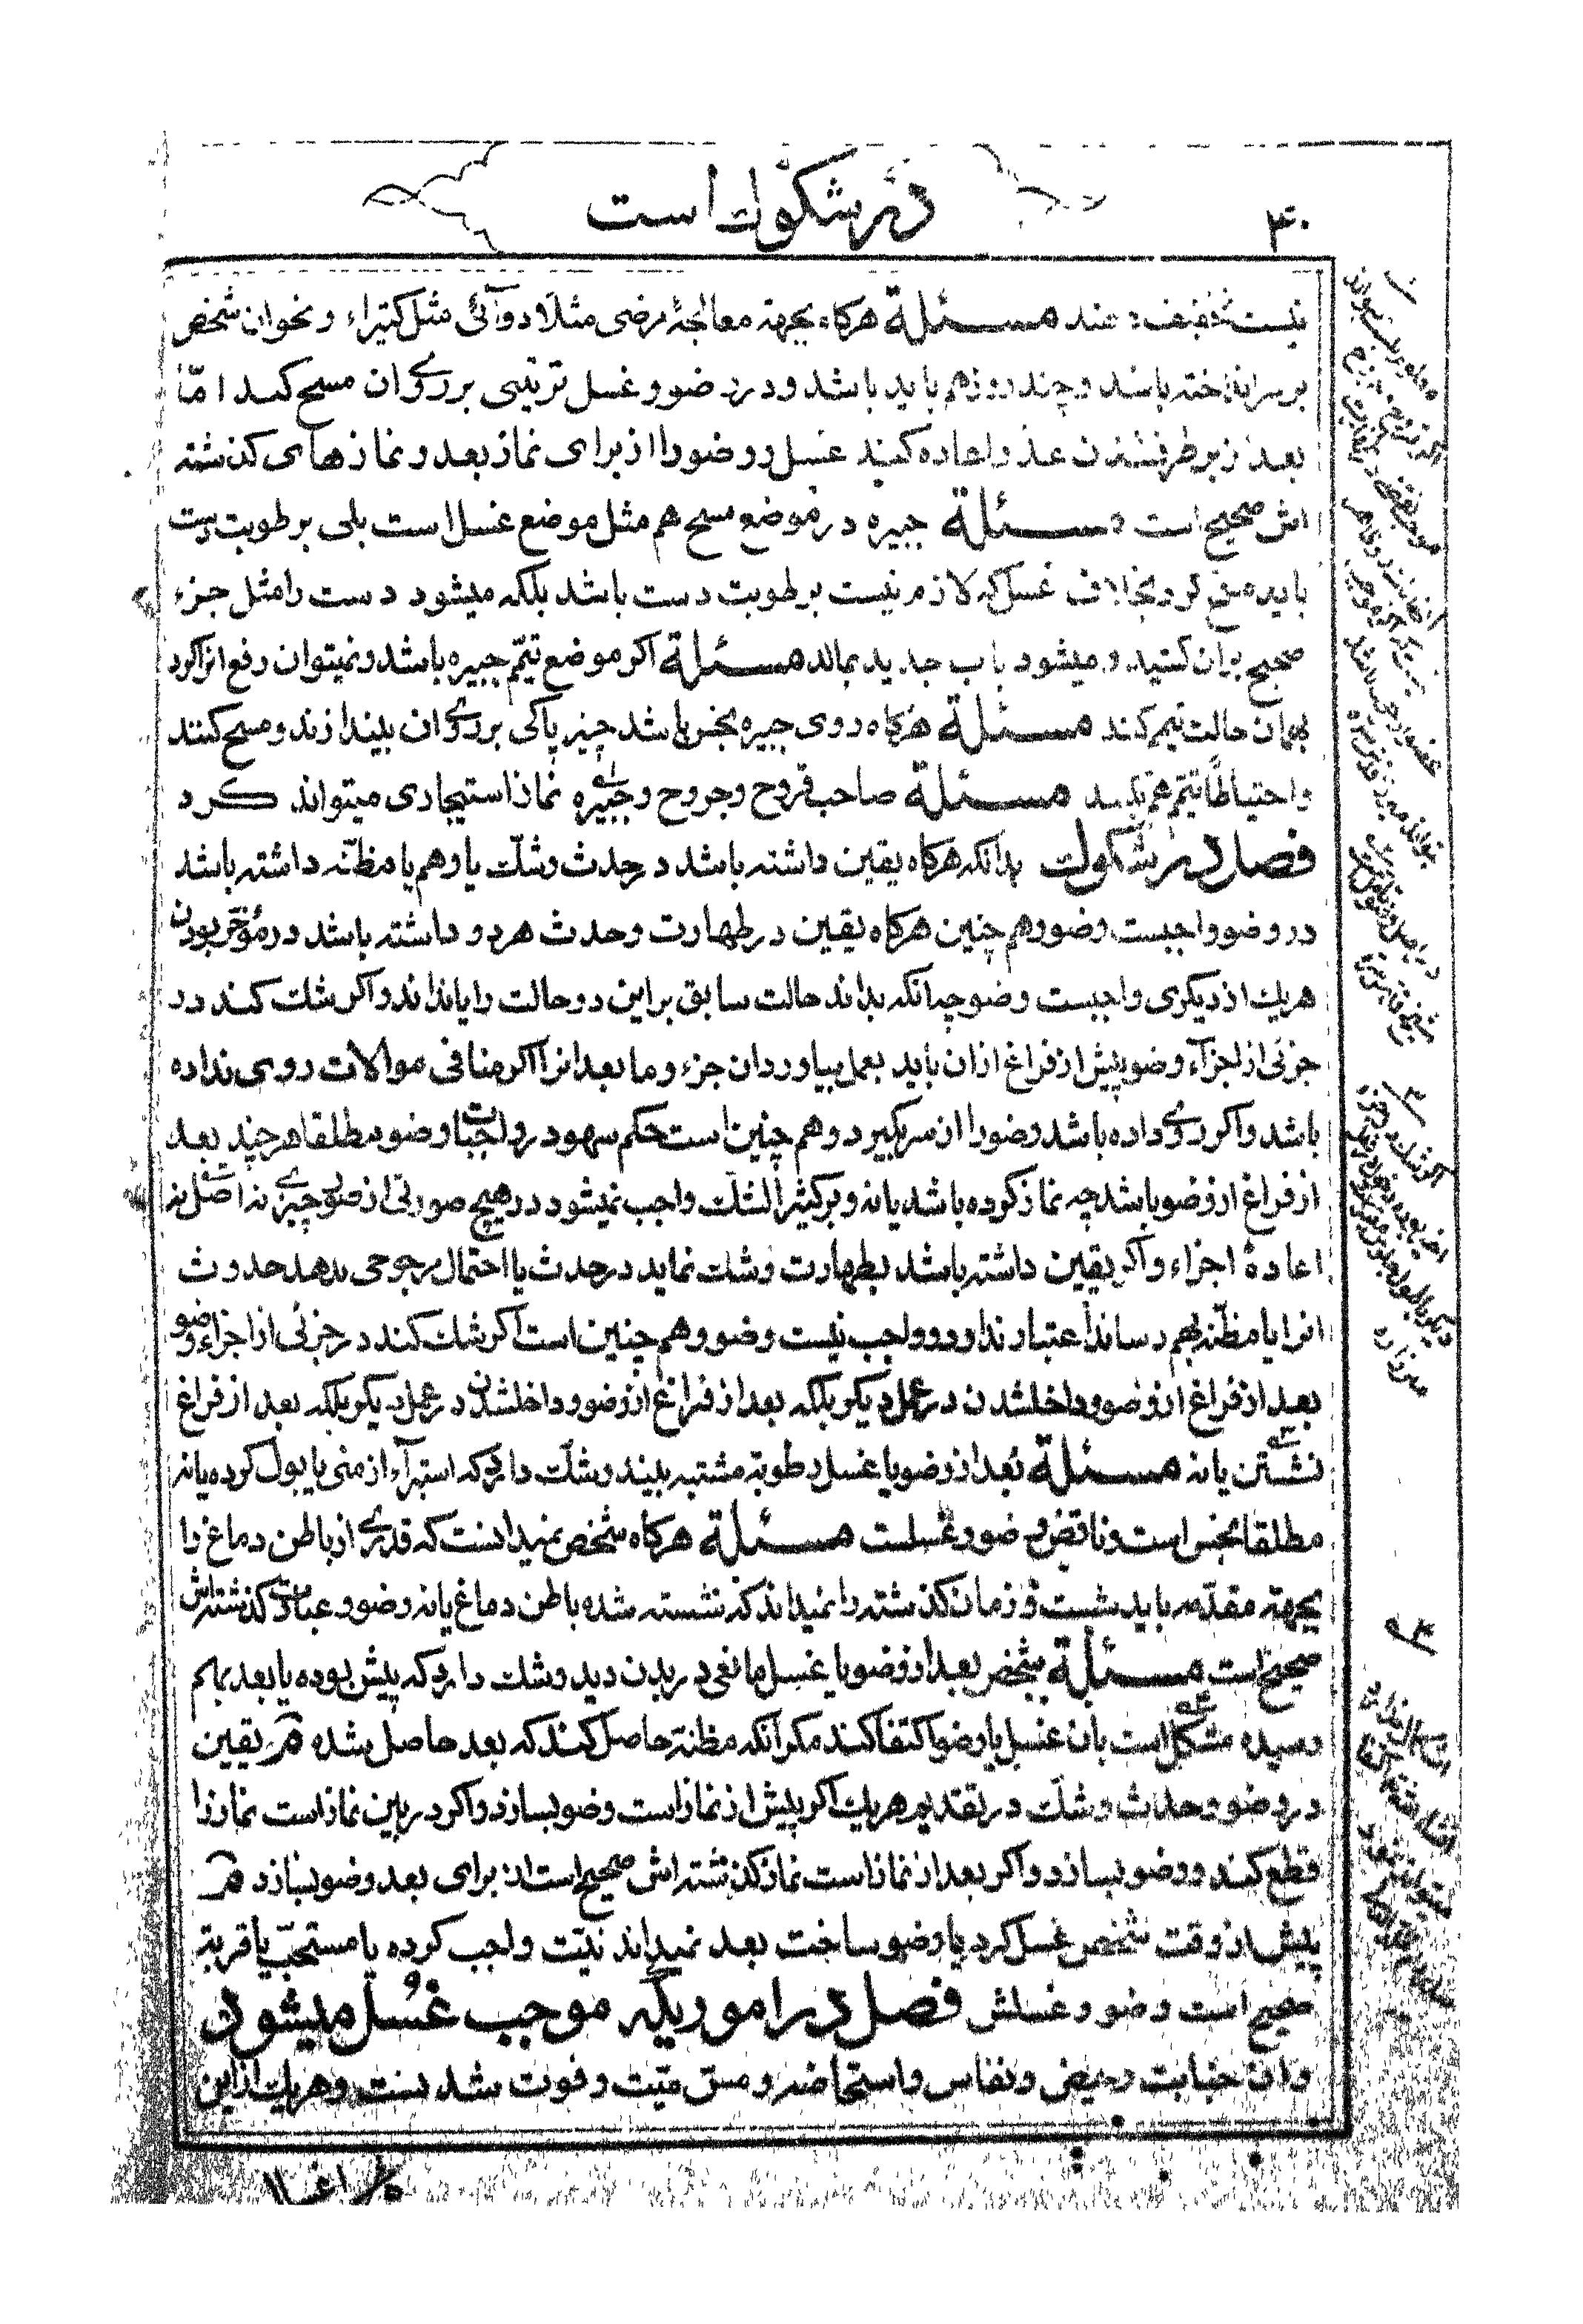 در شکوک است
۴۰
نیست تخفیف دهند مسئلة هرکاه بجهة معالجهٔ مرضی مثلا دوائی مثل کتیراء ونحوان شخص
بر سر انداخته باشد وچند روز هم باید باشد ودر وضو وغسل ترتیبی بر روی ان مسح کند امّا
بعد از برطرف شدن عذر اعاده کند غسل ووضو را از برای نماز بعد ونمازهای کذشته
اش صحیح است مسئلة جبیره در موضع مسح هم مثل موضع غسل است بلی برطوبت دست
باید مسح کرد بخلاف غسل که لازم نیست برطوبت دست باشد بلکه میشود دست را مثل جزء
صحیح بران کشید ومیشود باب جدید بمالد مسئلة اکر موضع تیمّم جبیره باشد ونمیتوان رفع انرا کرد
بهمان حالت تیمم کند مسئلة هرکاه روی جبیره نجس باشد چیز پاکی بر روی ان بیندازند ومسح کنند
واحتیاطا تیمّم هم بکند مسئلة صاحب قروح وجروح وجبیره نماز استیجاری میتواند کرد
فصل در شکوک بدانکه هرکاه یقین داشته باشد در حدث وشک یا وهم یا مظنّه داشته باشد
در وضو واجبست وضو وهم چنین هرکاه یقین در طهارت وحدث هردو داشته باشد در مؤخر بودن
هریک از دیکری واجبست وضو چه انکه بداند حالت سابق بر این دو حالت را یا نداند واکر شک کند در
جزئی از اجزآء وضو پیش از فراغ از ان باید بعمل بیاورد ان جزء وما بعد انرا اکر منافی موالات روی نداده
باشد واکر روی داده باشد وضو را از سر بکیرد وهم چنین است حکم سهو در واجبات وضو مطلقا هر چند بعد
از فراغ از وضو باشد چه نماز کرده باشد یا نه وبر کثیر الشک واجب نمیشود در هیچ صورتی از صور چیزی نه اصل نه
اعادهٔ اجزاء واکر یقین داشته باشد بطهارت وشک نماید در حدث یا احتمال مرجوحی بدهد حدوث
انرا یا مظنّه بهم رساند اعتبار ندارد وواجب نیست وضو وهم چنین است اکر شک کند در جزئی از اجزاء وضو
بعد از فراغ از وضو وداخلشدن در عمل دیکر بلکه بعد از فراغ از وضو وداخلشدن در عمل دیکر بلکه بعد از فراغ
نشستن یا نه مسئلة بعد از وضو یا غسل رطوبة مشتبه بیند وشک دارد که استبرآء از منی یا بول کرده یا نه
مطلقا نجس است وناقض وضو وغسلست مسئلة هرکاه شخص نمیدانست که قدری از باطن دماغ را
بجهة مقدّمه باید شست وزمان کذشته را نمیداند که نشسته شده باطن دماغ یا نه وضو وعبادت کذشته اش
صحیح است مسئلة شخص بعد از وضو یا غسل مانعی در بدن دید وشک دارد که پیش بوده یا بعد بهم
رسیده مشکل است بان غسل یا وضو اکتفا کند مکر انکه مظنة حاصل کند که بعد حاصل شده هر یقین
در وضو وحدث وشک در تقدیم هریک اکر پیش از نماز است وضو بسازد واکر در بین نماز است نماز را
قطع کند ووضو بسازد واکر بعد از نماز است نماز کذشته اش صحیح است از برای بعد وضو بسازد هر
پیش از وقت شخص غسل کرد یا وضو ساخت بعد نمیداند نیّت واجب کرده یا مستحبّ یا قربة
صحیح است وضو وغسلش فصل در اموریکه موجب غسل میشود
وان جنابت وحیض ونفاس واستحاضه ومسّ میّت وفوت شدنست وهریک از این